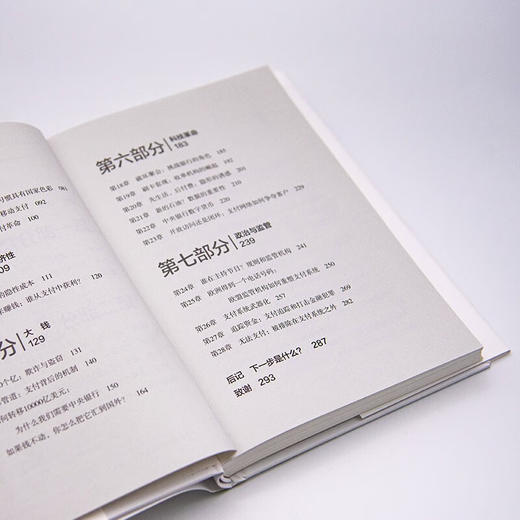 习惯具有国家色彩 081
移动支付 092
付革命 100
济性
09
的隐性成本 111
来赚钱：谁从支付中获利？ 120
分 大钱
129
0个亿，欺诈与盗窃
管道：支付背后的机制 140
何转移10000亿美元：
为什么我们需要中央银行 150
如果钱不动，你怎么把它汇到国外？ 164
第六部分 科技革命
183
第18章 破坏聚会：挑战银行的角色 185
第19章 刷卡套现：收单机构的崛起 192
第20章 先生活，后付费，隐形的诱惑 205
第21章 新的石油？数据的重要性 220
第22章 中央银行数字货币
第23章 开放访问还是闭环：支付网络如何争夺客户
第七部分 政治与监管
239
第24章 谁在主持节目？规则和监管机构 241
第25章 欧洲得到一个电话号码：
欧盟监管机构如何重塑支付系统
第26章 支付系统武器化 257
第27章 追踪资金：支付追踪和打击金融犯罪
第28章 无法支付：被排除在支付系统之外 282
后记 下一步是什么？ 287
致谢 293